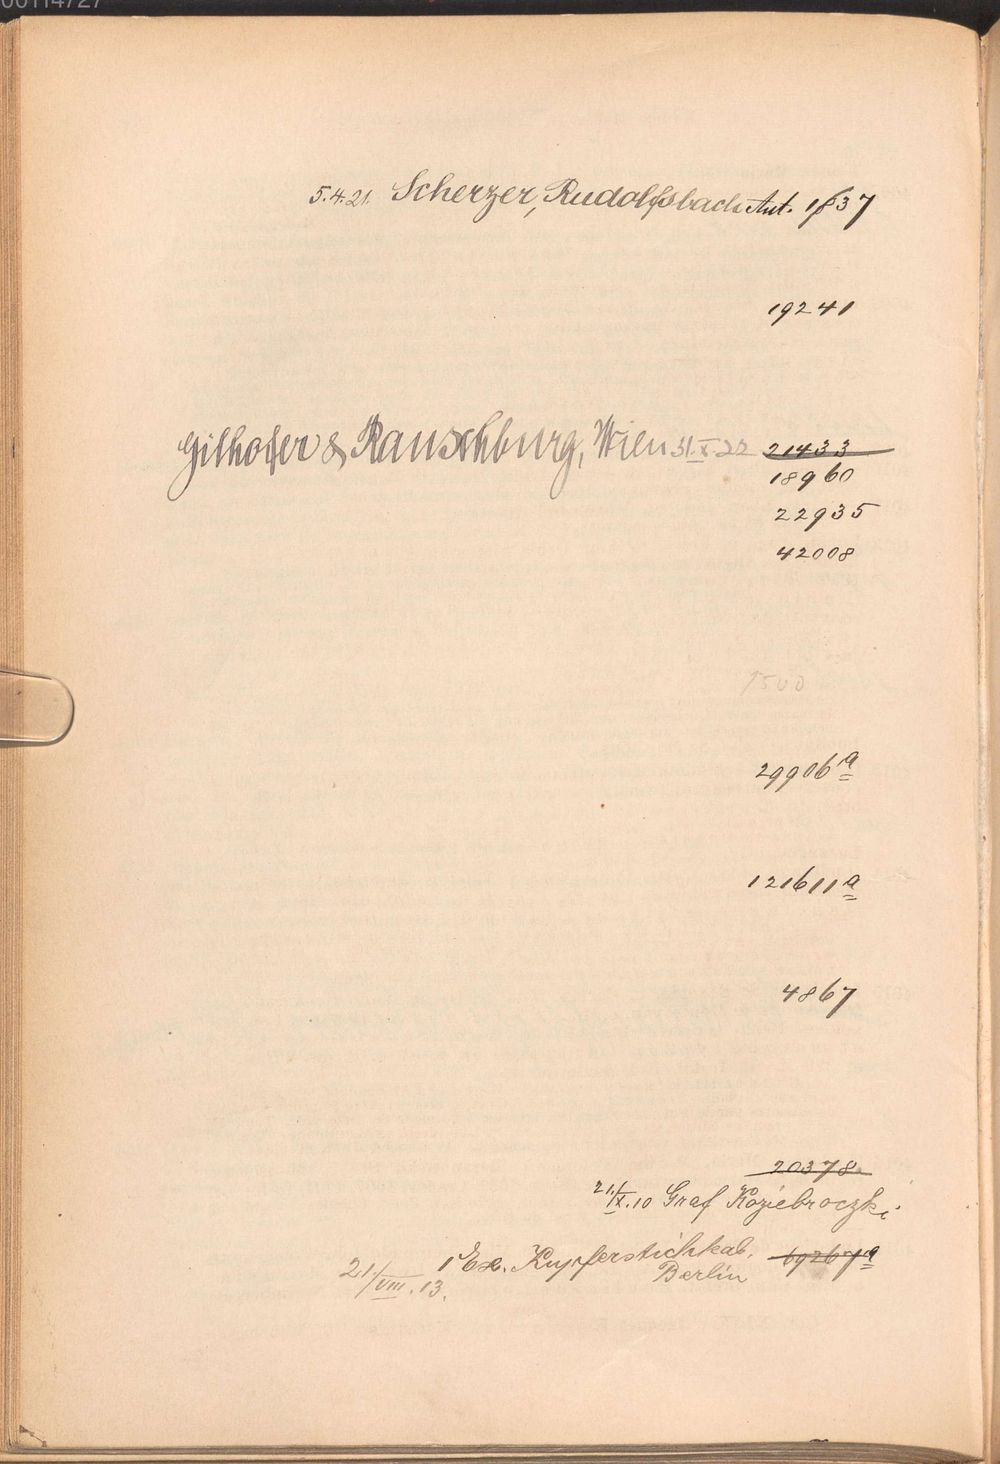 00114727
5.4.21. Scherzer, Rudolfsbach Ant. 1837
19241
Gilhofer & Ranschburg, Wien 31.X.22 21433
18960
22935
42008
7500
29906a
121611a
4867
20378
21./IX.10 Graf Koziebroczki
1 Ex. Kupferstichkab. 69267a
21./VIII.13. Berlin